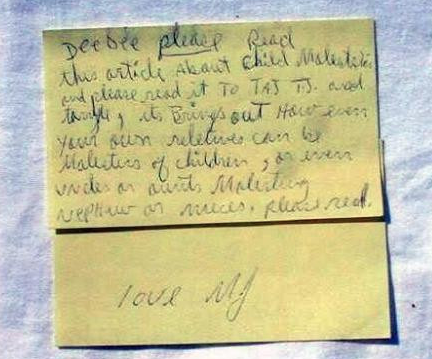 DeeDee please Read
this article About Child Molestation
and please read it TO TAJ TJ. and
, its Brings out How even
your own reletives can be
Molesters of children, or even
uncles or aunts Molesting
nephew or nieces. please read.
love MJ